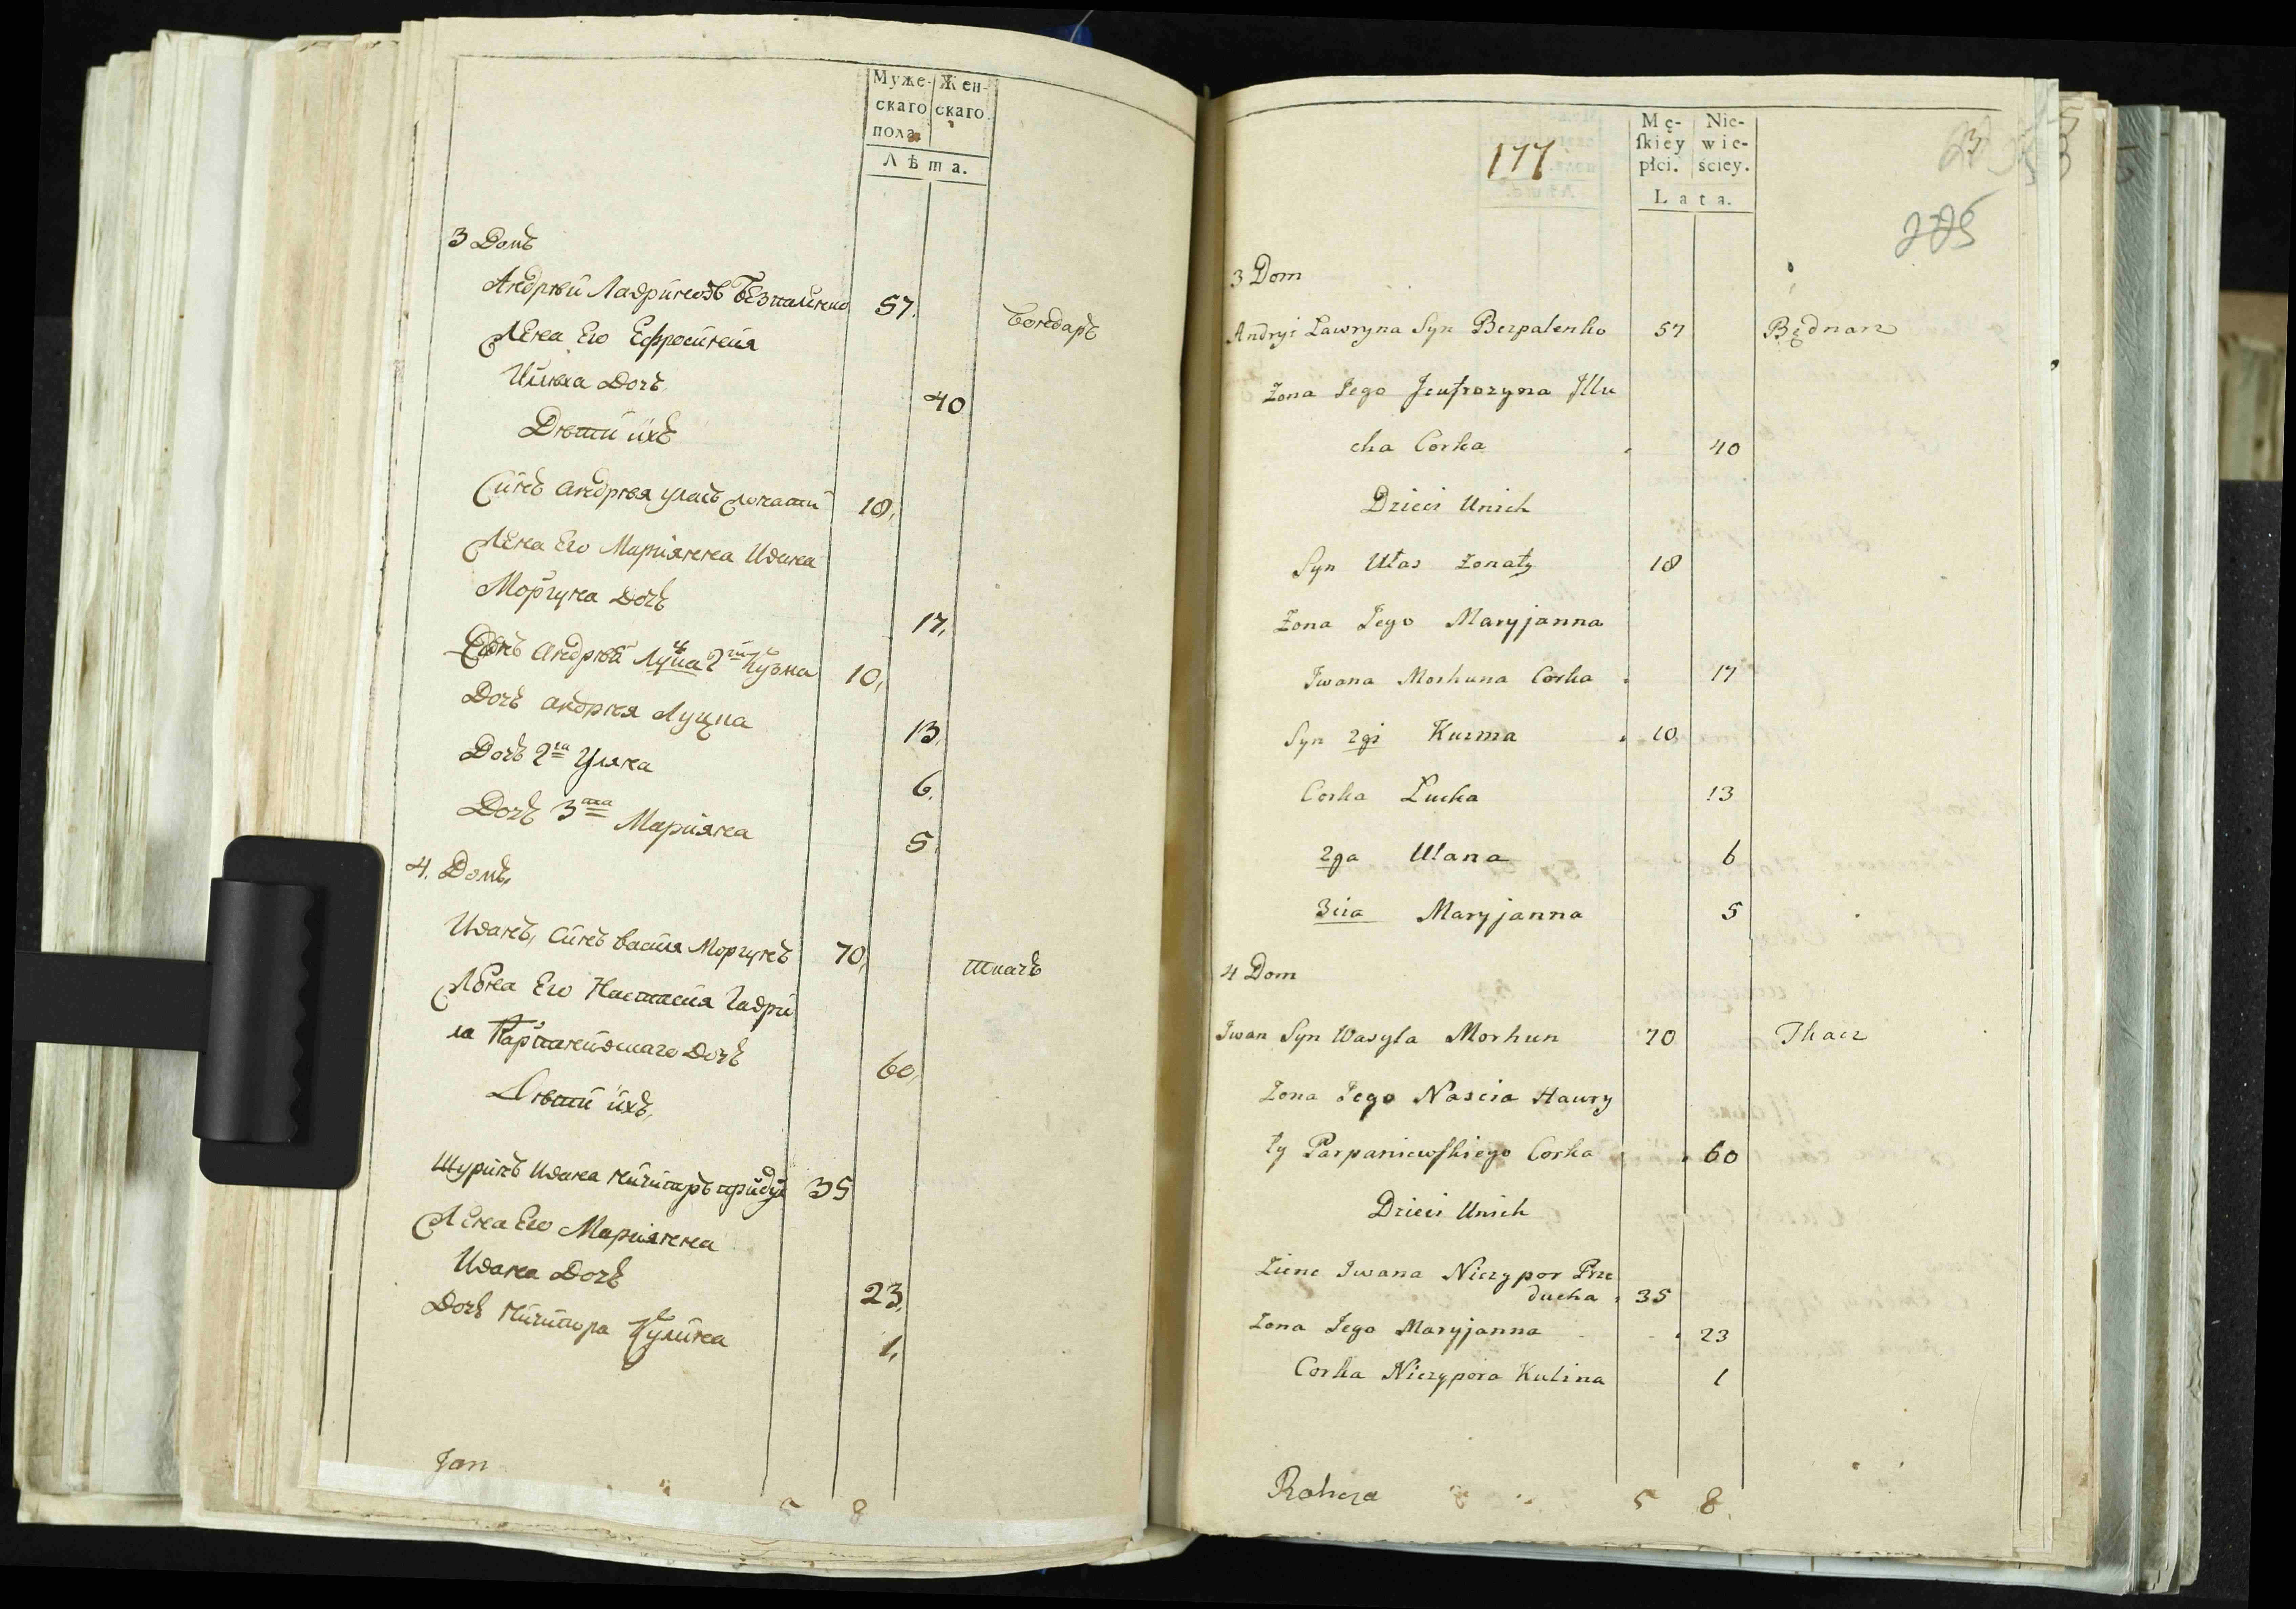 Муже- Жен-
скаго скаго
пола
Лѣта.
3 Домъ
Андрѣй Лавриновъ Безпалѣнко 57. бондаръ
Жена Его Ефросиния
Илюха Дочъ 40
Дѣти ихъ
Синъ андрѣя уласъ жонатий 18,
Жена Его Марiянна Ивана
Моргуна дочъ 17,
Синъ андрѣя 2гий Кузма 10,
Дочъ андрѣя Луцка 13,
Дочъ 2га Уляна 6,
Дочъ 3тая Марияна 5,
4. Домъ,
Иванъ, синъ василя Моргунъ 70, ткачъ
Жона Его Настасия Гаври
ла Парпанѣвскаго Дочъ 60,
Дѣти ихъ,
Шуринъ Ивана Ничипоръ придуха 35
Жена Его Мариянна
Ивана Дочъ 23,
Дочъ Ничипора Кулина 1,
Jan
5 8
177
Mę- Nie-
ſkiey wie-
płci. ściey.
Lata.
225
3 Dom
Andryi Ławryna Syn Bezpalenko 57 Będnarz
Zona Jego Jeufrozyna Illu
cha Corka 40
Dzieci Unich
Syn Ułas Zonaty 18
Zona Jego Maryjanna
Iwana Morhuna Corka 17
Syn 2gi Kuzma 10
Corka Łucka 13
2ga Ulana 6
3cia Maryjanna 5
4 Dom
Iwan Syn Wasyla Morhun 70 Tkacz
Zona Jego Nascia Hawry
ły Parpaniewſkiego Corka 60
Dzieci Unich
Ziene Iwana Niczypor Prze
ducha 35
Zona Jego Maryjanna 23
Corka Niczypora Kulina 1
Rohoza
5 8.